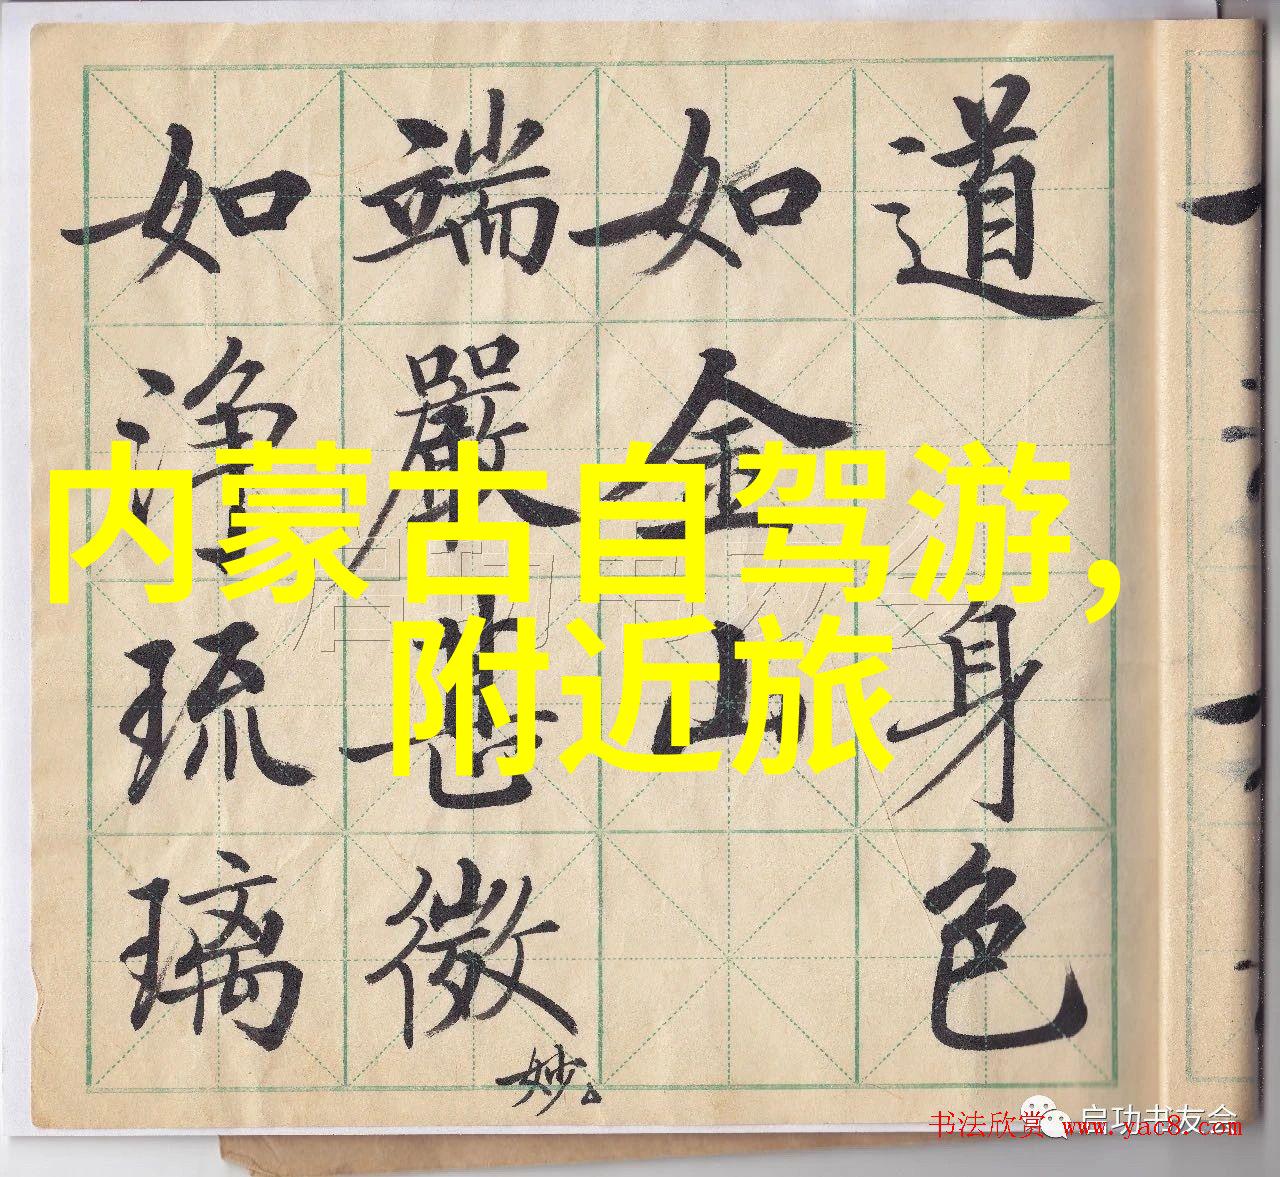 道身色
如金山
端嚴甚微妙
如淨琉璃
内蒙古自驾游，
附近旅
启功书友会
启功书友会
书法欣赏 www.yac8.com